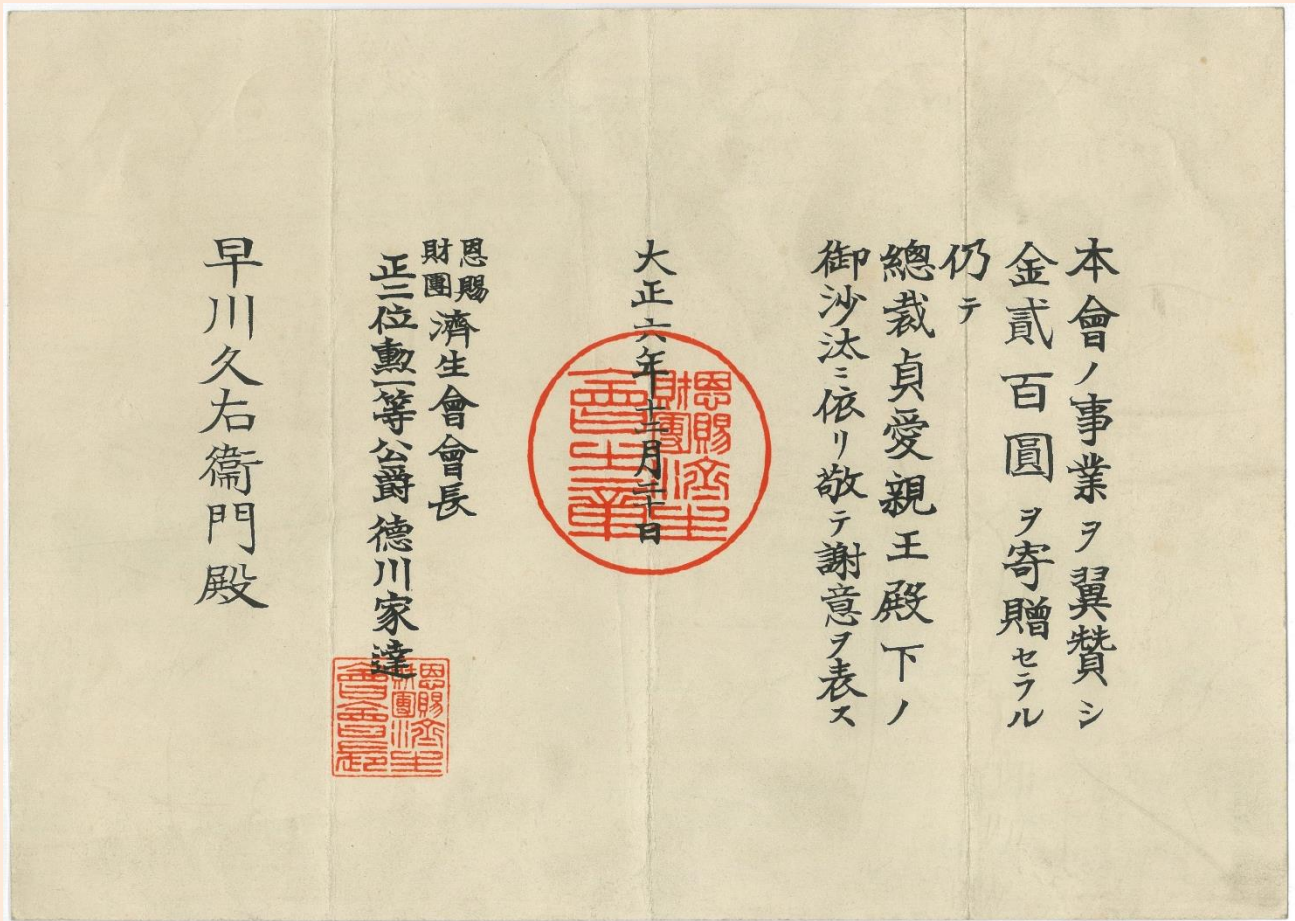 本會ノ事業ヲ翼贊シ
金貳百圓ヲ寄贈セラル
仍テ
總裁貞愛親王殿下ノ
御沙汰ニ依リ敬テ謝意ヲ表ス
大正六年十二月二十日
恩賜財團濟生會之章
恩賜財團濟生會會長
正二位勲一等公爵德川家達
恩賜財團濟生會會長印
早川久右衞門殿